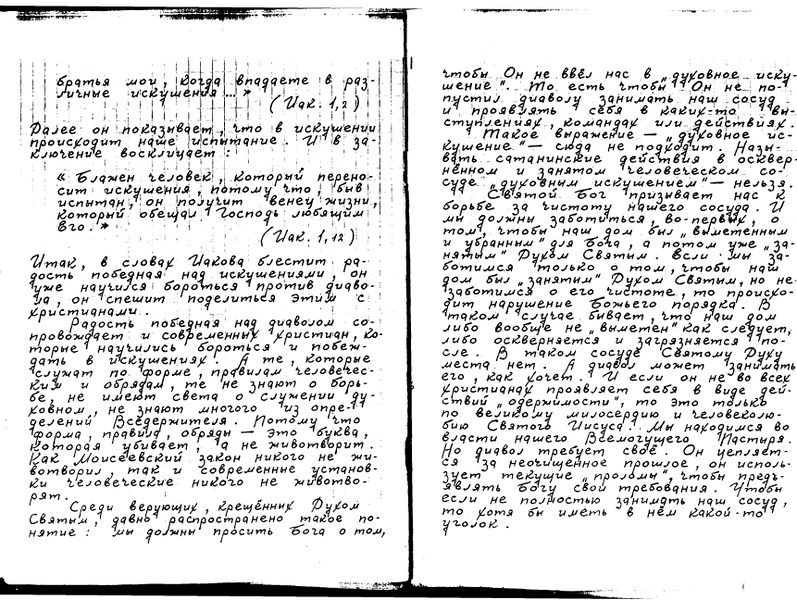 братья мои, когда впадаете в раз-
личные искушения...»
(Иак. 1,2)
Далее он показывает, что в искушении
происходит наше испытание. И в за-
ключение восклицает:
« Блажен человек, который перено-
сит искушения, потому что, быв
испытан, он получит венец жизни,
который обещал Господь любящим
Его.»
(Иак. 1,12)
Итак, в словах Иакова блестит ра-
дость победная над искушениями, он
уже научился бороться против диаво-
ла, он спешит поделиться этим с
христианами.
Радость победная над диаволом со-
провождает и современных христиан, ко-
торые научились бороться и побеж-
дать в искушениях. А те, которые
служат по форме, правилам человечес-
ким и обрядам, те не знают о борь-
бе, не имеют света о служении ду-
ховном, не знают многого из опре-
делений Вседержителя. Потому что
форма, правила, обряды — это буква,
которая убивает, а не животворит.
Как Моисеевский закон никого не жи-
вотворил, так и современные установ-
ки человеческие никого не животво-
рят.
Среди верующих, крещённых Духом
Святым, давно распространено такое по-
нятие: мы должны просить Бога о том,
чтобы Он не ввёл нас в „духовное иску-
шение". То есть чтобы Он не по-
пустил диаволу занимать наш сосуд
и проявлять себя в каких-то вы-
ступлениях, командах или действиях.
Такое выражение — „духовное ис-
кушение" — сюда не подходит. Назы-
вать сатанинские действия в осквер-
нённом и занятом человеческом со-
суде „духовным искушением" — нельзя.
Святой Бог призывает нас к
борьбе за чистоту нашего сосуда. И
мы должны заботиться, во-первых, о
том, чтобы наш дом был „выметенным
и убранным" для Бога, а потом уже „за-
нятым" Духом Святым. Если мы за-
ботимся только о том, чтобы наш
дом был „занятым" Духом Святым, но не
заботимся о его чистоте, то происхо-
дит нарушение Божьего порядка. В
таком случае бывает, что наш дом
либо вообще не „выметен" как следует,
либо оскверняется и загрязняется по-
сле. В таком сосуде Святому Духу
места нет. А диавол может занимать
его, как хочет. И если он не во всех
христианах проявляет себя в виде дей-
ствий „одержимости", то это только
по великому милосердию и человеколю-
бию Святого Иисуса. Мы находимся во
власти нашего Всемогущего Пастыря.
Но диавол требует своё. Он цепляет-
ся за неочищенное прошлое, он исполь-
зует текущие „проломы", чтобы предъ-
являть Богу свои требования. Чтобы
если не полностью занимать наш сосуд,
то хотя бы иметь в нём какой-то
уголок.